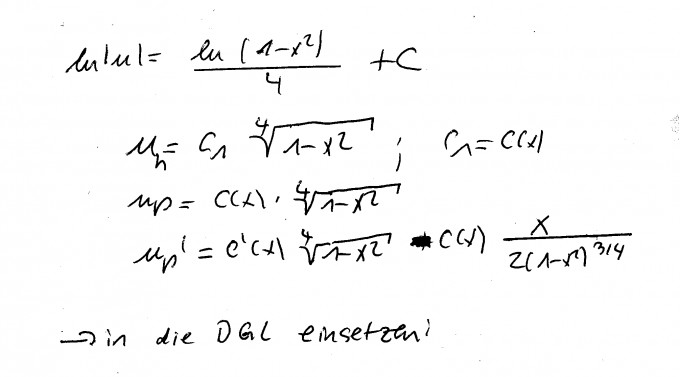 ln|u| = ln(1-x²)/4 + C
u_h = C₁ ∜(1-x²) ; C₁ = C(x)
u_p = C(x) · ∜(1-x²)
u_p' = C'(x) ∜(1-x²) - C(x) x/(2(1-x²)^(3/4))
→ in die DGL einsetzen